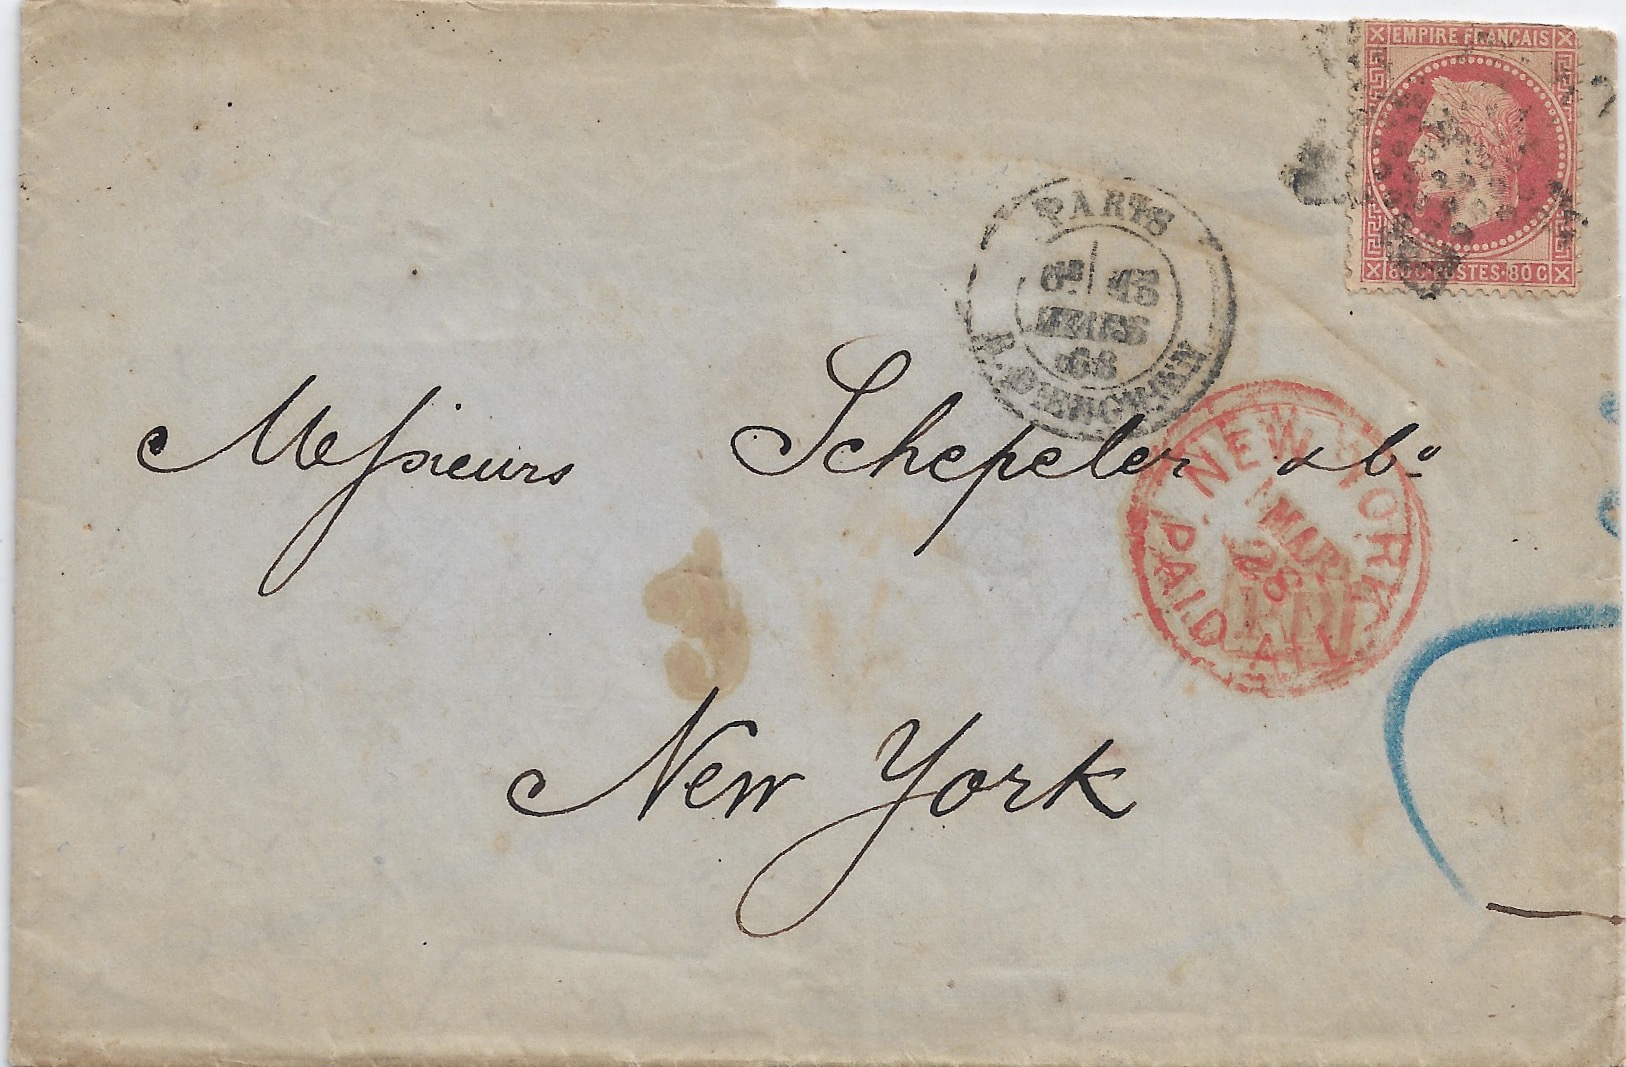 EMPIRE FRANÇAIS
80 C POSTES 80 C
PARIS
MARS
68
R. D'ENGHIEN
Messieurs Schepeler & Co
NEW YORK
MAR
28
PD
PAID ALL
New York